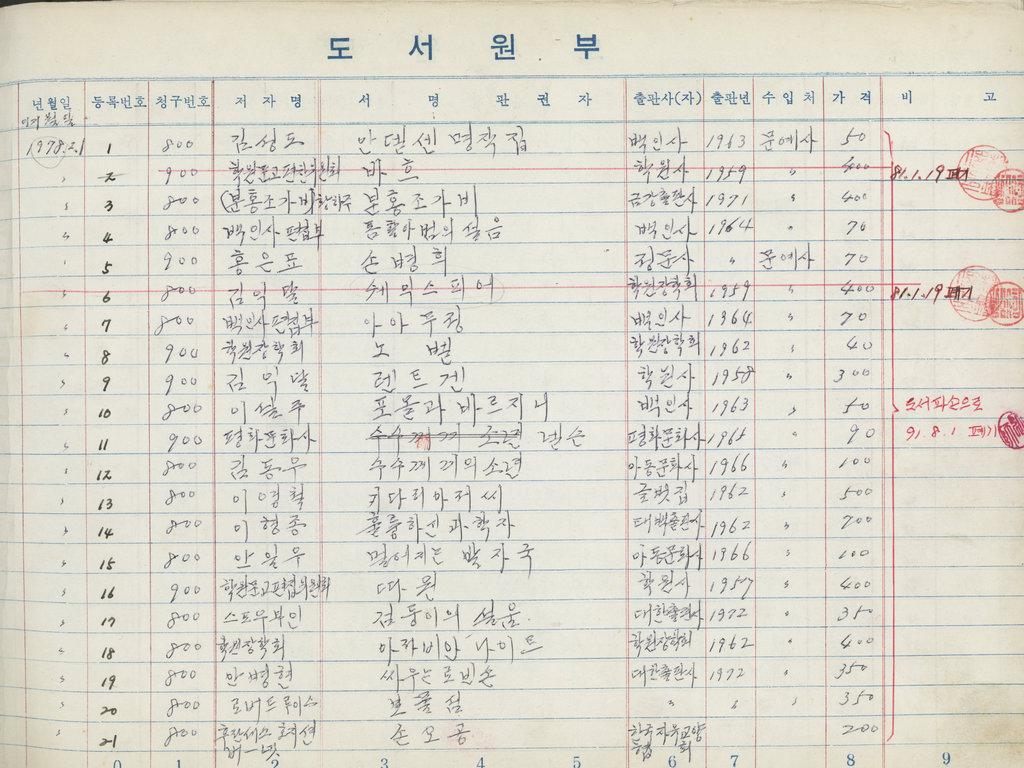 도 서 원 부
년월일 등록번호 청구번호 저 자 명 서 명 판 권 자 출판사(자) 출판년 수 입 처 가 격 비 고
1978.2.1 1 800 김성도 안델센 명작집 백인사 1963 문예사 50
〃 2 900 학원문고편찬위원회 바 흐 학원사 1959 〃 400 81.1.19 폐기
〃 3 800 (분홍조가비)황하주 분홍조가비 금강출판사 1971 〃 400
〃 4 800 백인사 편집부 톰 할아범의 설음 백인사 1964 〃 70
〃 5 900 홍은표 손병희 정문사 〃 문예사 70
〃 6 800 김익달 쉐익스피어 학원장학회 1959 〃 400 81.1.19 폐기
〃 7 800 백인사편집부 아아 무정 백인사 1964 〃 70
〃 8 900 학원장학회 노 벨 학원장학회 1962 〃 40
〃 9 900 김익달 렌트겐 학원사 1958 〃 300
〃 10 800 이설주 포올과 바르지니 백인사 1963 〃 50 도서파손으로
〃 11 900 평화문화사 넬슨 평화문화사 1965 〃 90 91.8.1 폐기
〃 12 800 김동우 수수께끼의 소년 아동문화사 1966 〃 100
〃 13 800 이영철 키다리아저씨 글벗집 1962 〃 500
〃 14 800 이형종 훌륭하신 과학자 태백출판사 1962 〃 700
〃 15 800 안일우 멀어지는 발자국 아동문화사 1966 〃 100
〃 16 900 학원문고편집위원회 따 윈 학원사 1957 〃 400
〃 17 800 스토우부인 검둥이의 설움 대한출판사 1972 〃 350
〃 18 800 학원장학회 아라비안 나이트 학원장학회 1962 〃 400
〃 19 800 안병현 싸우는 로빈손 대한출판사 1972 〃 350
〃 20 800 로버트 루이스 보물섬 〃 〃 〃 350
〃 21 800 후란세스 호지션 버ー넷 손오공 한국자유교양 회 200
0 1 2 3 4 5 6 7 8 9